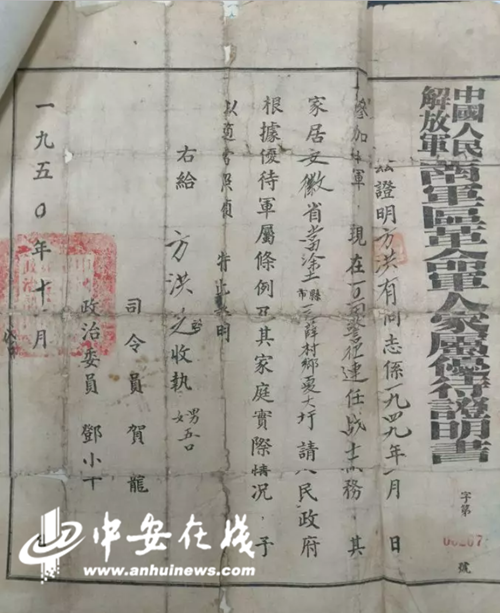 中國人民
解放軍
西南軍區革命軍人家屬優待證明書
字第
00207
號
茲證明方洪有同志係一九四九年一月 日
參加我軍.現在 連任战士 務.其
家居安徽省當塗 縣
市 薛村鄉 大圩 請人民政府
根據優待軍屬條例及其家庭實際情况.予
以適當照顧 特此證明
右給 方洪 收執 男
女 五口
司令員 賀龍
政治委員 鄧小平
一九五〇年十 月
中安在线
www.anhuinews.com